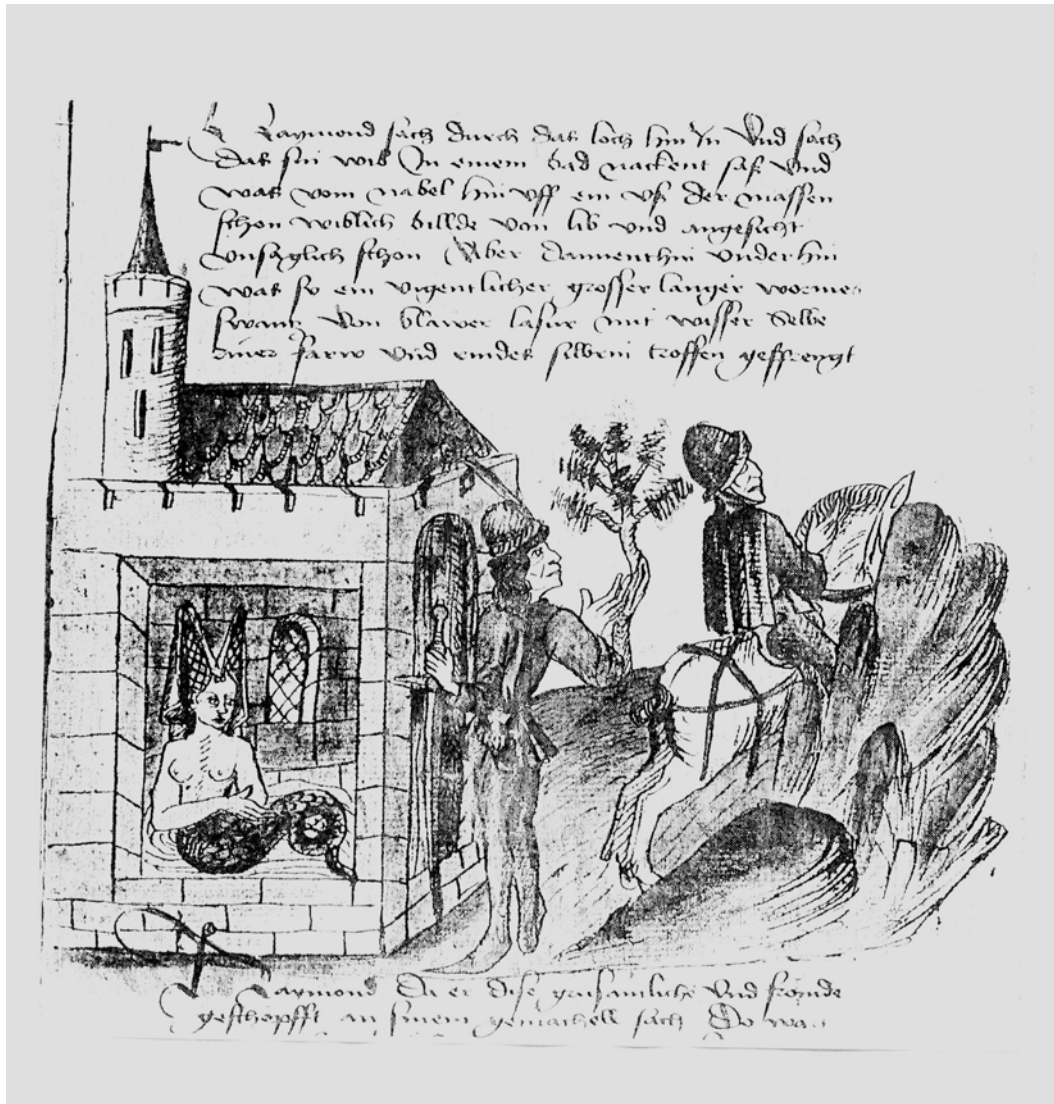 Raymond sach durch das loch hin In Und sach
das sin wib In einem bad nackent sas Und
was vom nabel hin uff ein us der massen
schon wiblich billde von lib und angesicht
unsaglich schon Aber dannenthin underhin
was sy ein eigentlicher grosser langer worme
swantz von blawer lasur mit wisser Selbe
farw Und silbrin troffen gesprengt
Raymond Da er dise grusamliche Und frömde
geschopfft an sinem gemachell sach Do wa